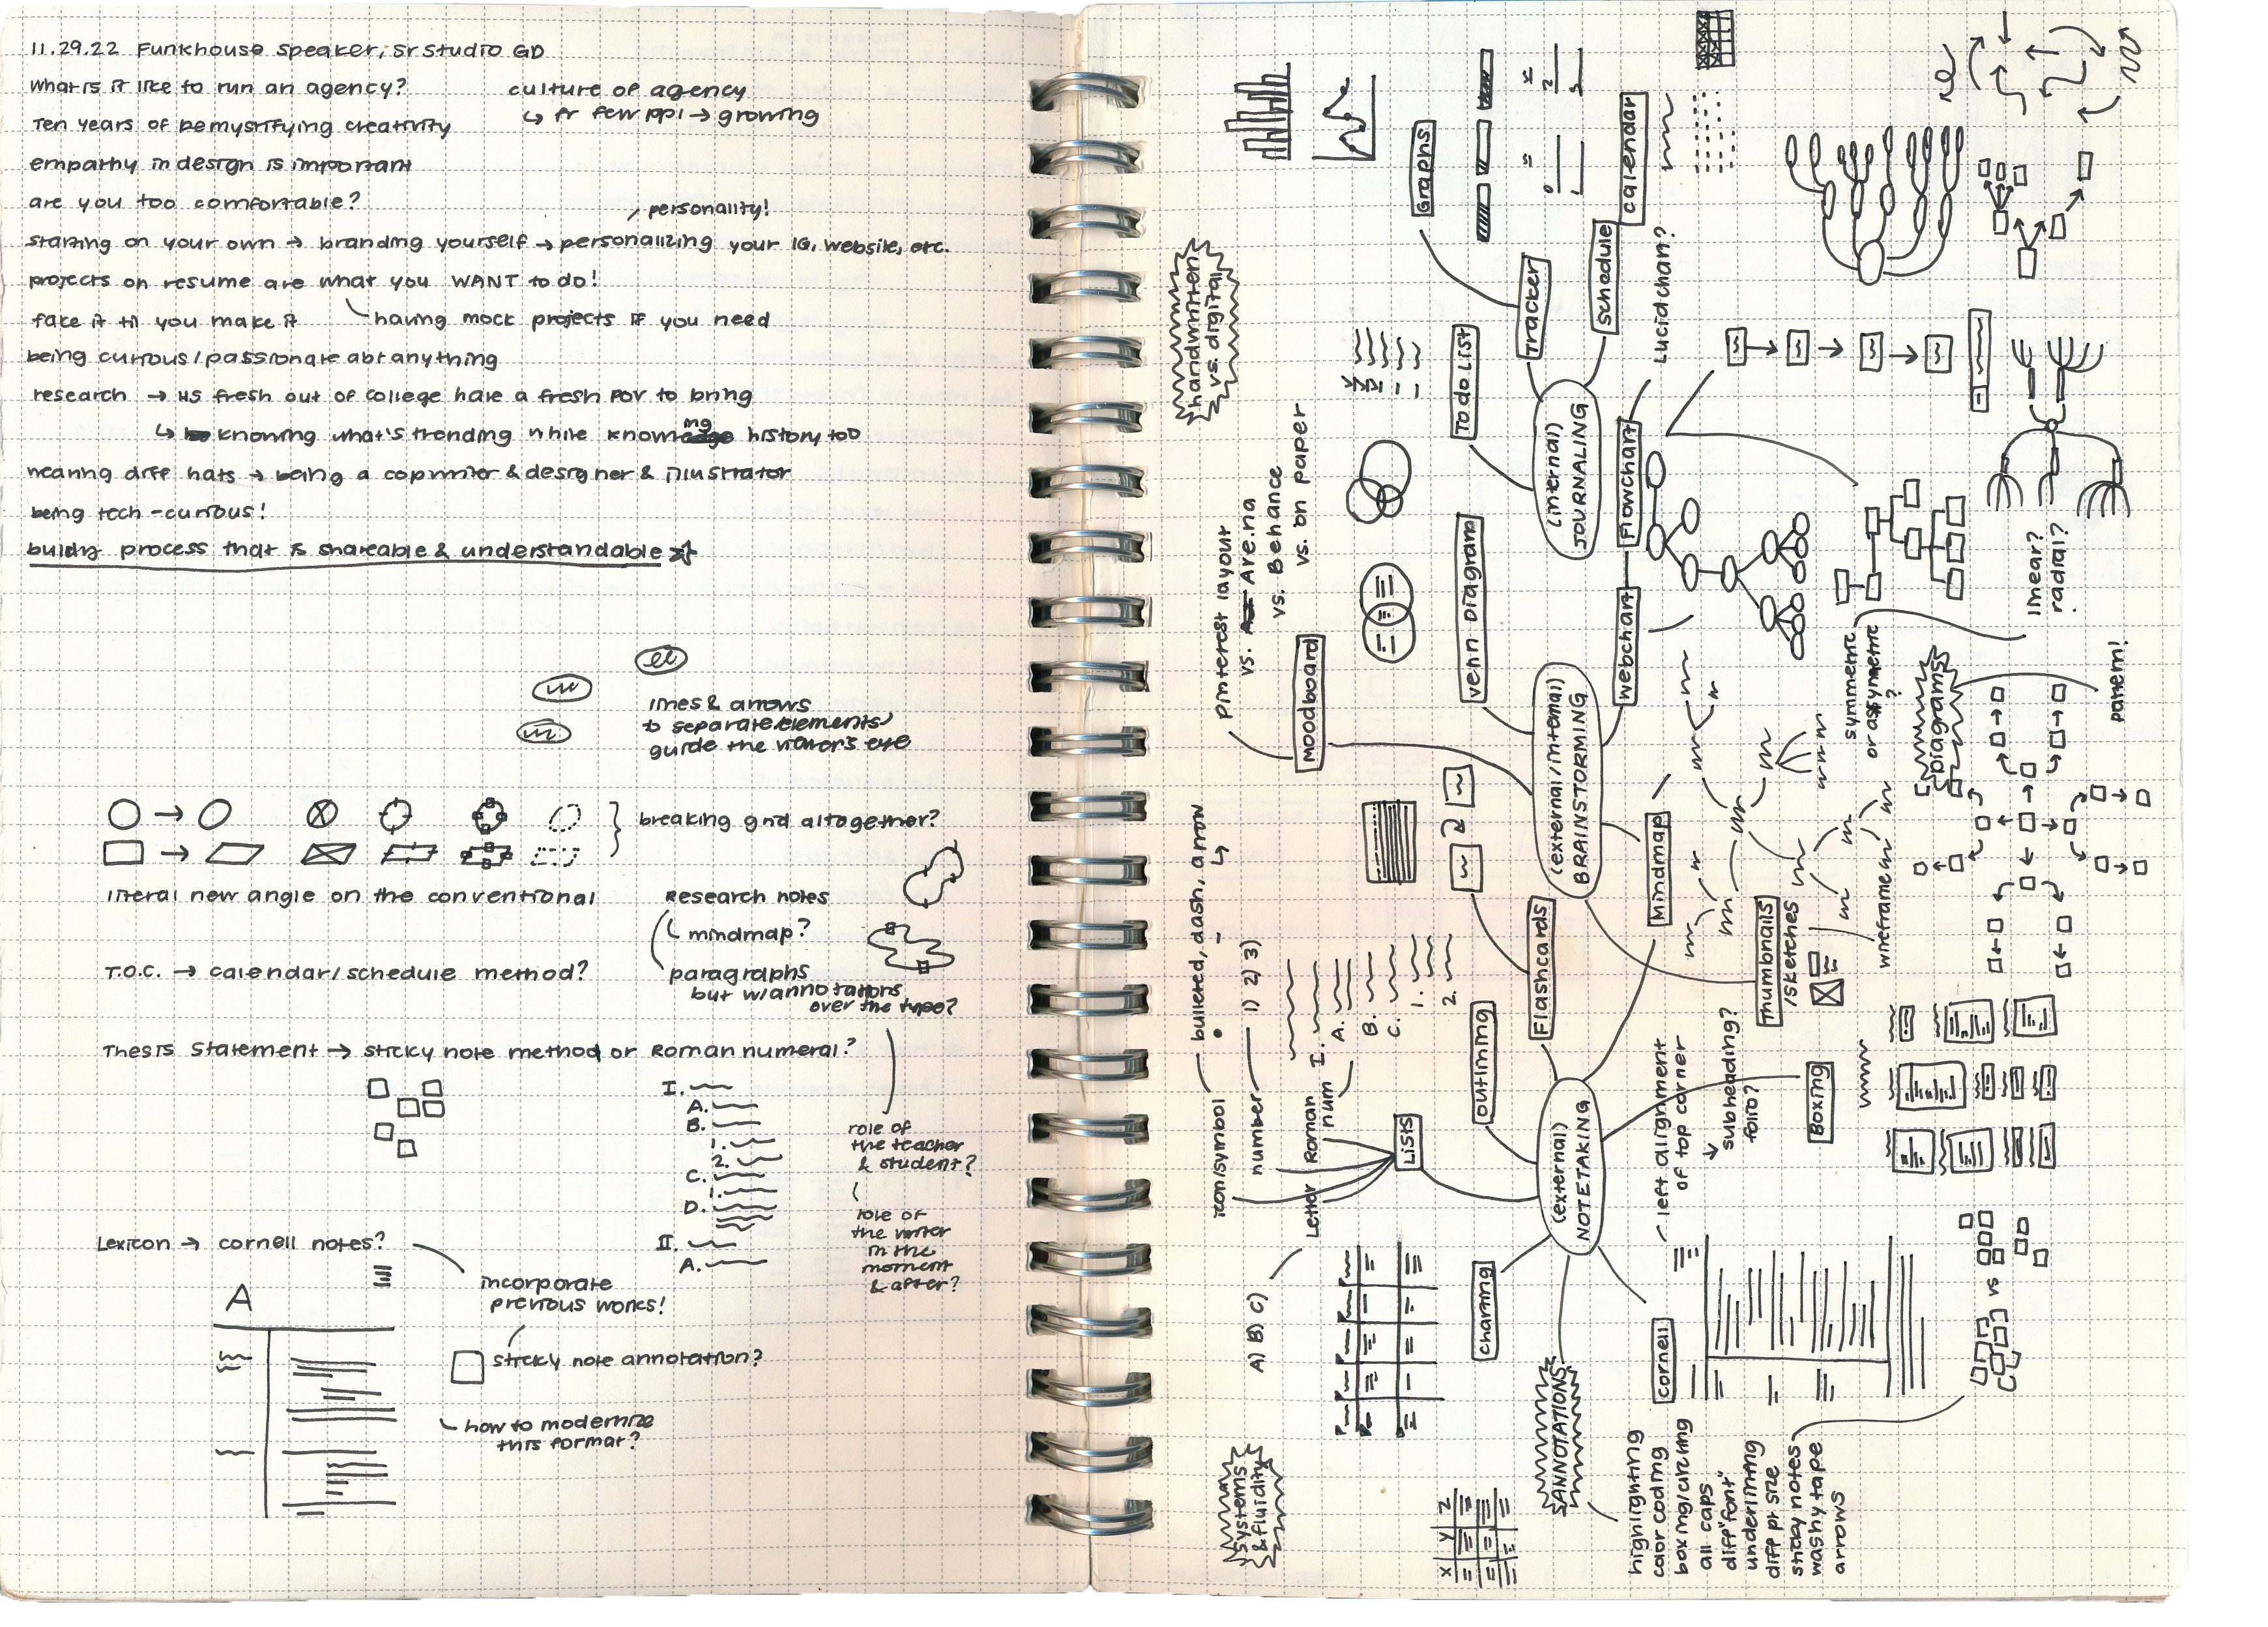 11.29.22 Funkhouse speaker, sr studio GD
what is it like to run an agency?
culture of agency
↳ fr few ppl → growing
Ten years of demystifying creativity
empathy in design is important
are you too comfortable?
personality!
starting on your own → branding yourself → personalizing your IG, website, etc.
projects on resume are what you WANT to do!
fake it til you make it
having mock projects if you need
being curious/passionate abt anything
research → US fresh out of college have a fresh POV to bring
↳ knowing what's trending while knowing history too
wearing diff hats → being a copywriter & designer & illustrator
being tech-curious!
building process that is shareable & understandable
lines & arrows
to separate elements/
guide the viewer's eye
breaking grid altogether?
literal new angle on the conventional
Research notes
mindmap?
paragraphs
but w/annotations
over the type?
T.O.C. → calendar/schedule method?
Thesis Statement → sticky note method or Roman numeral?
I.
A.
B.
1.
2.
C.
1.
D.
II.
A.
role of
the teacher
& student?
role of
the writer
in the
moment
& after?
Lexicon → cornell notes?
A
incorporate
previous works!
sticky note annotation?
how to modernize
this format?
systems
& fluidity
handwritten
vs. digital
(external)
NOTETAKING
Lists
icon/symbol
bulleted, dash, arrow
• - ↳
number
1) 2) 3)
Roman
num
I.
A.
B.
C.
1.
2.
Letter
A) B) C)
Charting
X Y Z
ANNOTATIONS
highlighting
color coding
boxing/circling
all caps
diff "font"
underlining
diff pt size
sticky notes
washy tape
arrows
cornell
left alignment
of top corner
↳ subheading?
folio?
vs
Boxing
outlining
Flashcards
Mindmap
(external/internal)
BRAINSTORMING
Moodboard
Pinterest layout
vs. Are.na
vs. Behance
vs. on paper
venn Diagram
webchart
Flowchart
Lucidchart?
Thumbnails
/sketches
wireframe
symmetric
or assymetric
?
Diagrams
pattern!
linear?
radial?
(internal)
JOURNALING
To do List
Tracker
Graphs
schedule
calendar